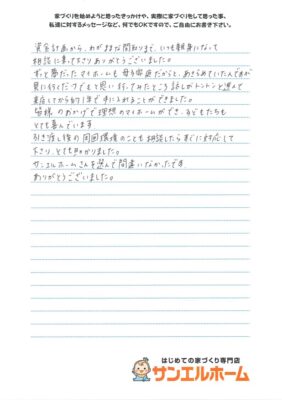 家づくりを始めようと思ったきっかけや、実際に家づくりをして思った事、
私達に対するメッセージなど、何でもOKですので、ご自由にお書き下さい。
資金計画から、わがままな間取りまで、いつも親身になって
相談に乗って下さりありがとうございました。
ずっと夢だったマイホームも母子家庭だからと、あきらめていたんですが
見に行くだけでもと思い行ってみたところ話しがトントンと進んで
来店してから約1年で手に入れることができました。
皆様のおかげで理想のマイホームができ、子どもたちも
とても喜んでいます。
引き渡し後の周囲環境のことも相談したらすぐに対応して
下さり、とても助かりました。
サンエルホームさんを選んで間違いなかったです。
ありがとうございました。
はじめての家づくり専門店
サンエルホーム